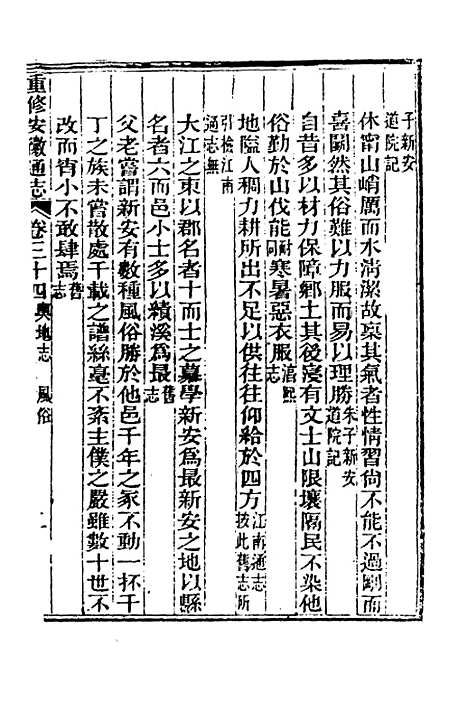 子新安道院記
休甯山峭厲而水清潔故稟其氣者性情習尙不能不過剛而
喜鬭然其俗難以力服而易以理勝朱子新安道院記
自昔多以材力保障鄉土其後寖有文士山限壤隔民不染他
俗勤於山伐能耐寒暑惡衣服淳熙志
地隘人稠力耕所出不足以供往往仰給於四方江南通志按此舊志所引檢江南通志無
大江之東以郡名者十而士之慕學新安爲最新安之地以縣
名者六而邑小士多以績溪爲最舊志
父老嘗謂新安有數種風俗勝於他邑千年之冢不動一抔千
丁之族未嘗散處千載之譜絲毫不紊主僕之嚴雖數十世不
改而宵小不敢肆焉舊志
重修安徽通志 卷三十四輿地志 風俗